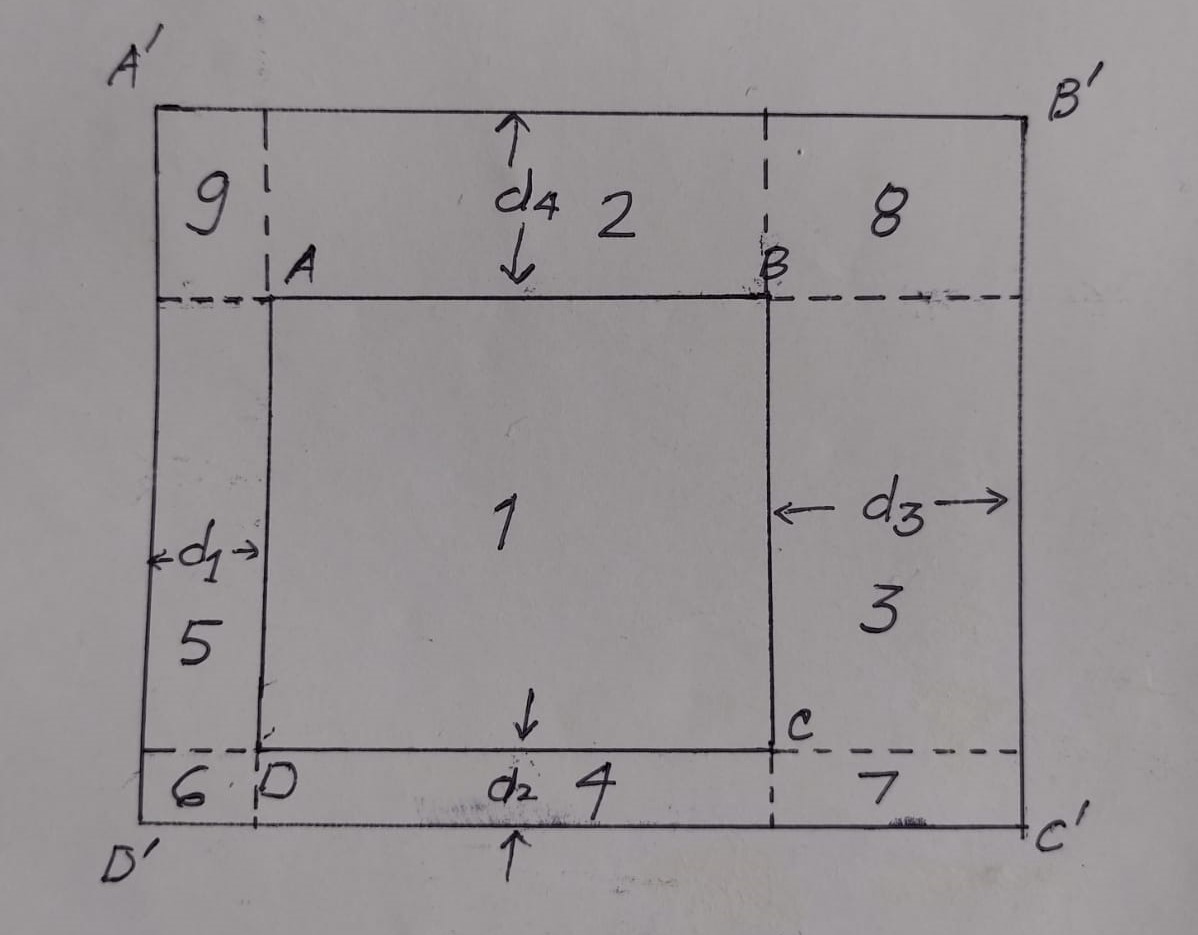 A' B'
9 d4 2 8
A B
1 d3
d1 3
5
C
6 D d2 4 7
D' C'